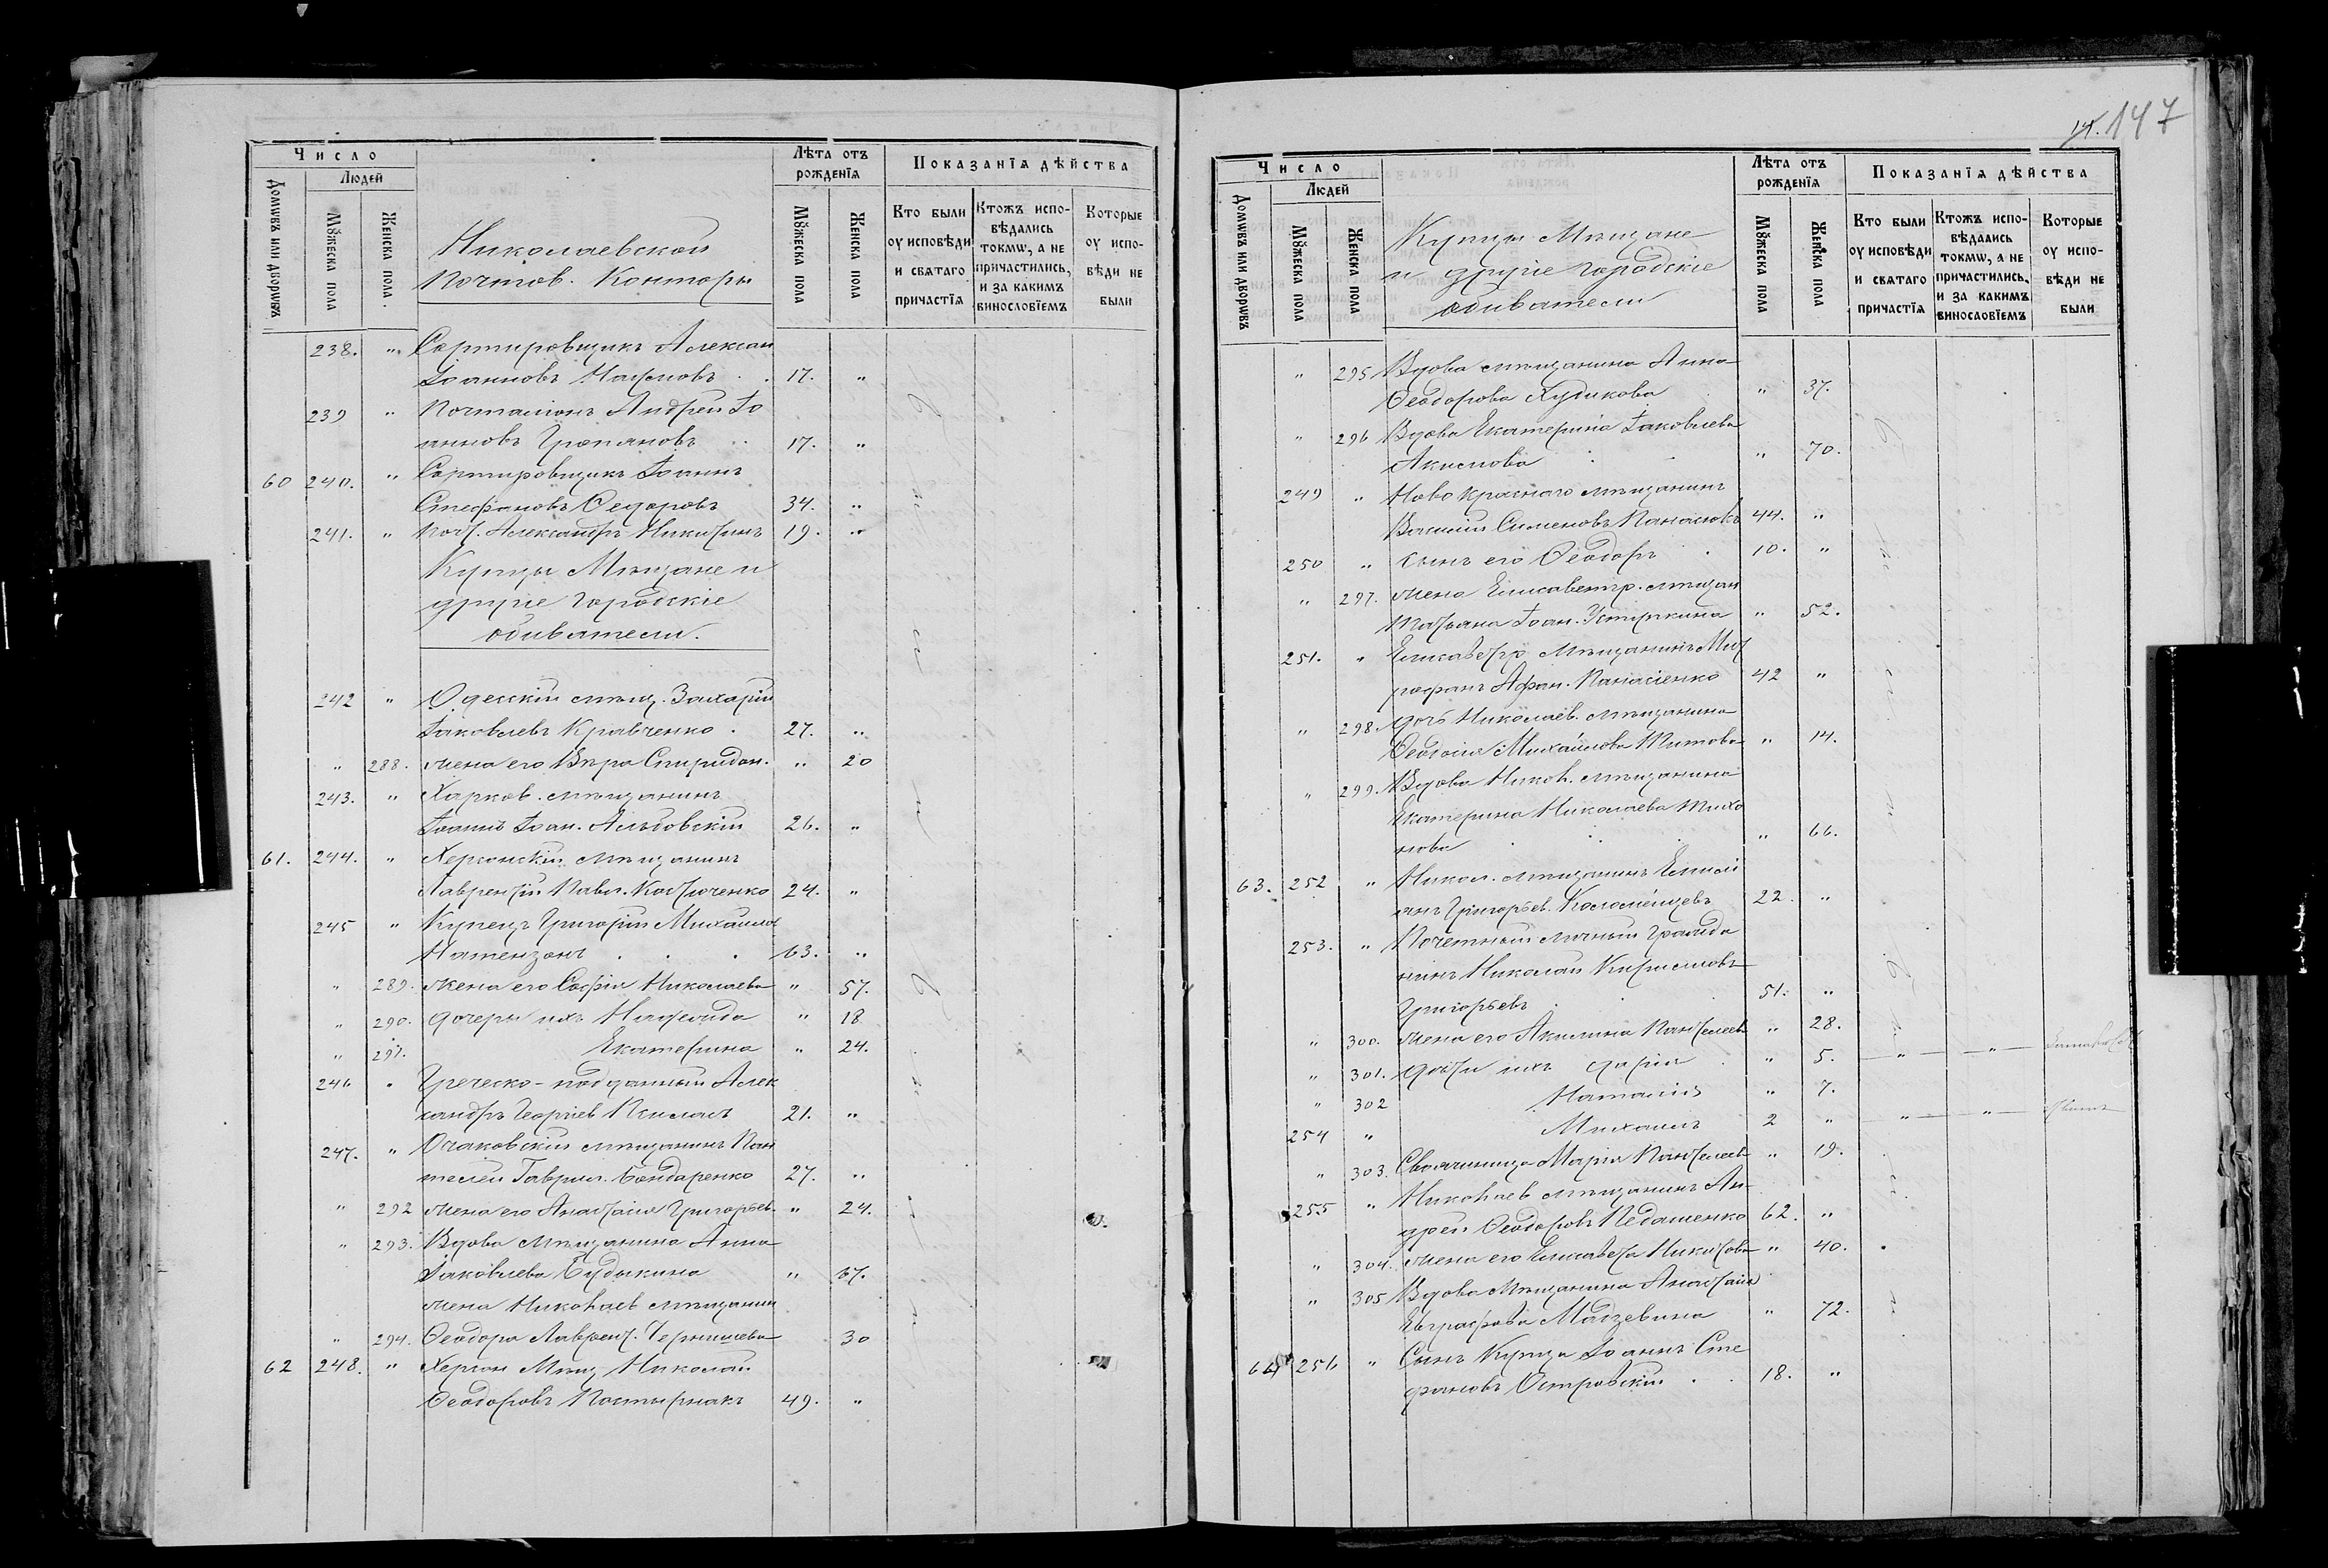 Число
Людей
Домωвъ или дворωвъ
Мꙋжеска пола
Женска пола.
Николаевской
Почтов. Конторы
Лѣта отъ
рожденїѧ
Мꙋжеска пола
Женска пола
Показанїѧ дѣйства
Кто были
оу исповѣди
и свѧтаго
причастїѧ
Ктожъ испо-
вѣдались
токмω, а не
причастились,
и за какимъ
винословїемъ
Которые
оу испо-
вѣди не
были
238. " Сортировщикъ Алексан
Іоанновъ 17. "
239 " Почталіонъ Андрей Іо
анновъ 17. "
60 240. " Сортировщикъ Іоаннъ
Стефановъ Ѳедоровъ 34. "
241. " Поч. Александръ Никитинъ 19. "
Купцы Мѣщане и
другіе городскіе
обиватели.
242 " Одесскій мѣщ. Захарій
Іаковлевъ Кравченко . 27. "
" 288. жена его Вѣра Спиридон. " 20
243. " Харков. мѣщанинъ
Іоаннъ Іоан. 26. "
61. 244. " Херсонскій мѣщанинъ
Лаврентій Павл. Костюченко 24. "
245 " Купецъ Григорій Михаилов
Натензонъ . . . 63. "
" 289. жена его Софія Николаева " 57.
" 290. дочери ихъ " 18
" 291. Екатерина " 24.
246 " Греческо-подданный Алек
сандръ Георгіев 21. "
247. " Очаковскій мѣщанинъ Пан
телей Гаврил. Бондаренко 27. "
" 292 жена его Анастасія Григорьев. " 24.
" 293. Вдова мѣщанина Анна
Іаковлева Будыкина " 67.
жена Николаев мѣщанин
" 294. Ѳеодора Лаврент. Чернишева 30
62 248. " Херсон Мѣщ Николай
Ѳеодоровъ Постырнакъ 49. "
147
Число
Людей
Домωвъ или дворωвъ
Мꙋжеска пола
Женска пола
Купцы Мѣщане
и другіе городскіе
обиватели
Лѣта отъ
рожденїѧ
Мꙋжеска пола
Женска пола
Показанїѧ дѣйства
Кто были
оу исповѣди
и свѧтаго
причастїѧ
Ктожъ испо-
вѣдались
токмω, а не
причастились,
и за какимъ
винословїемъ
Которые
оу испо-
вѣди не
были
" 295 Вдова мѣщанина Анна
Ѳеодорова Кудикова " 37.
" 296 Вдова Екатерина Іаковлева
Акимова " 70.
249 " Ново мѣщанинъ
Василій Сименовъ Панасюкъ 44. "
250 " сынъ его Ѳеодоръ . 10. "
" 297. жена Елисаветгр. мѣщан
Татьяна Іоан. " 52.
251. " Елисаветгр мѣщанинъ Мит
рофанъ Афан. Панасіенко 42 "
" 298. дочь Николаев. мѣщанина
Ѳеодосія Михайлова Титова " 14.
" 299. Вдова Никол. мѣщанина
Екатерина Николаева Тихо
нова " 66.
63. 252 " Никол. мѣщанинъ Емилі
анъ Григорьев. Коломейцевъ 22. "
253. " Почетный личный гражда
нинъ Николай Кирилловъ
Григорьевъ . 51. "
" 300. жена его Акилина Пантелеев " 28.
" 301. дѣти ихъ Дарія . " 5. " "
" 302 Наталія " 7.
254 " Михаилъ 2 " " "
" 303. Своячиница Марія Пантелеев " 19.
255 " Николаев мѣщанинъ Ан-
дрей Ѳеодоровъ Недашенко 62. "
" 304. жена его Елисавета Никитова " 40.
" 305 Вдова мѣщанина Анастасія
Евграфова " 72.
64 256 " Сынъ Купца Іоаннъ Сте
фановъ Островскій . 18. "